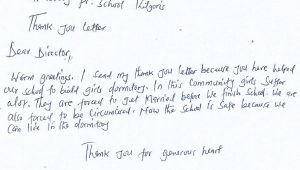 pr. School Kilgoris
Thank you letter
Dear Director,
Warm greetings. I send my thank you letter because you have helped
our school to build girls dormitory. In this community girls suffer
alot. They are forced to get Married before we finish school. We are
also forced to be Circumcised. Now the school is safe because we
can live in the dormitory
Thank you for generous heart